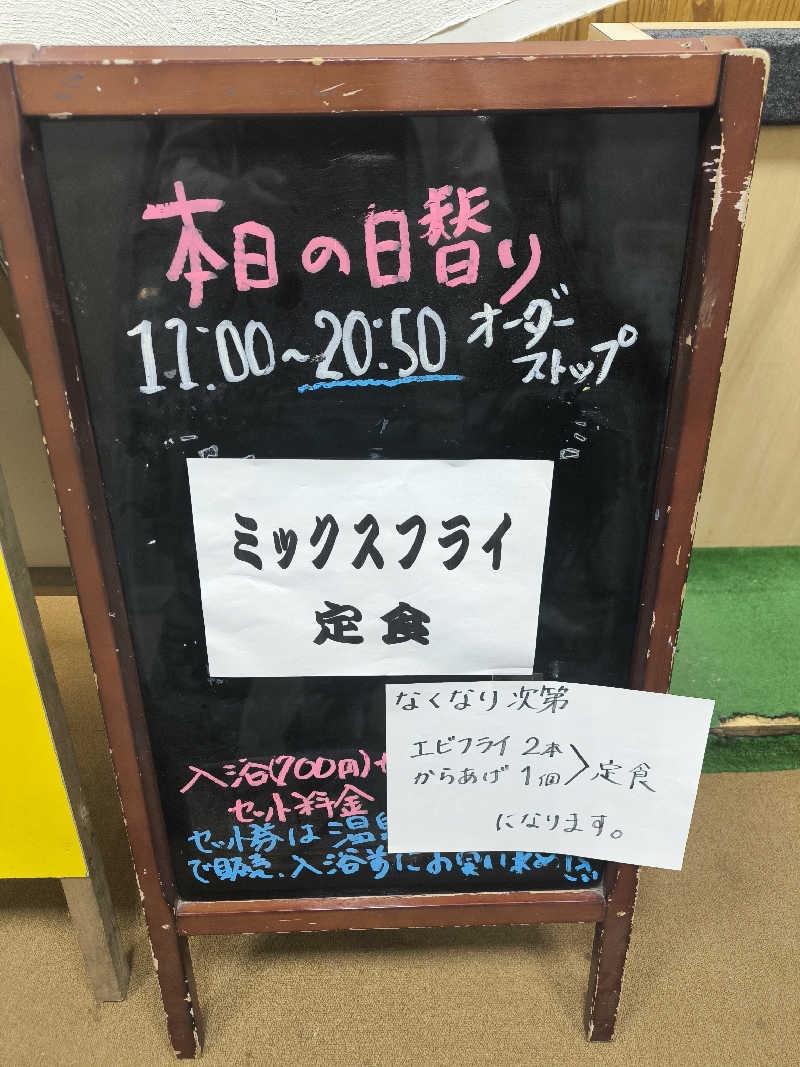 本日の日替り
11:00~20:50 オーダー
ストップ
ミックスフライ
定食
なくなり次第
エビフライ 2本
からあげ 1個 〉定食
になります。
入浴(700円)
セット料金
セット券は温
で販売、入浴前にお買い求め下さい